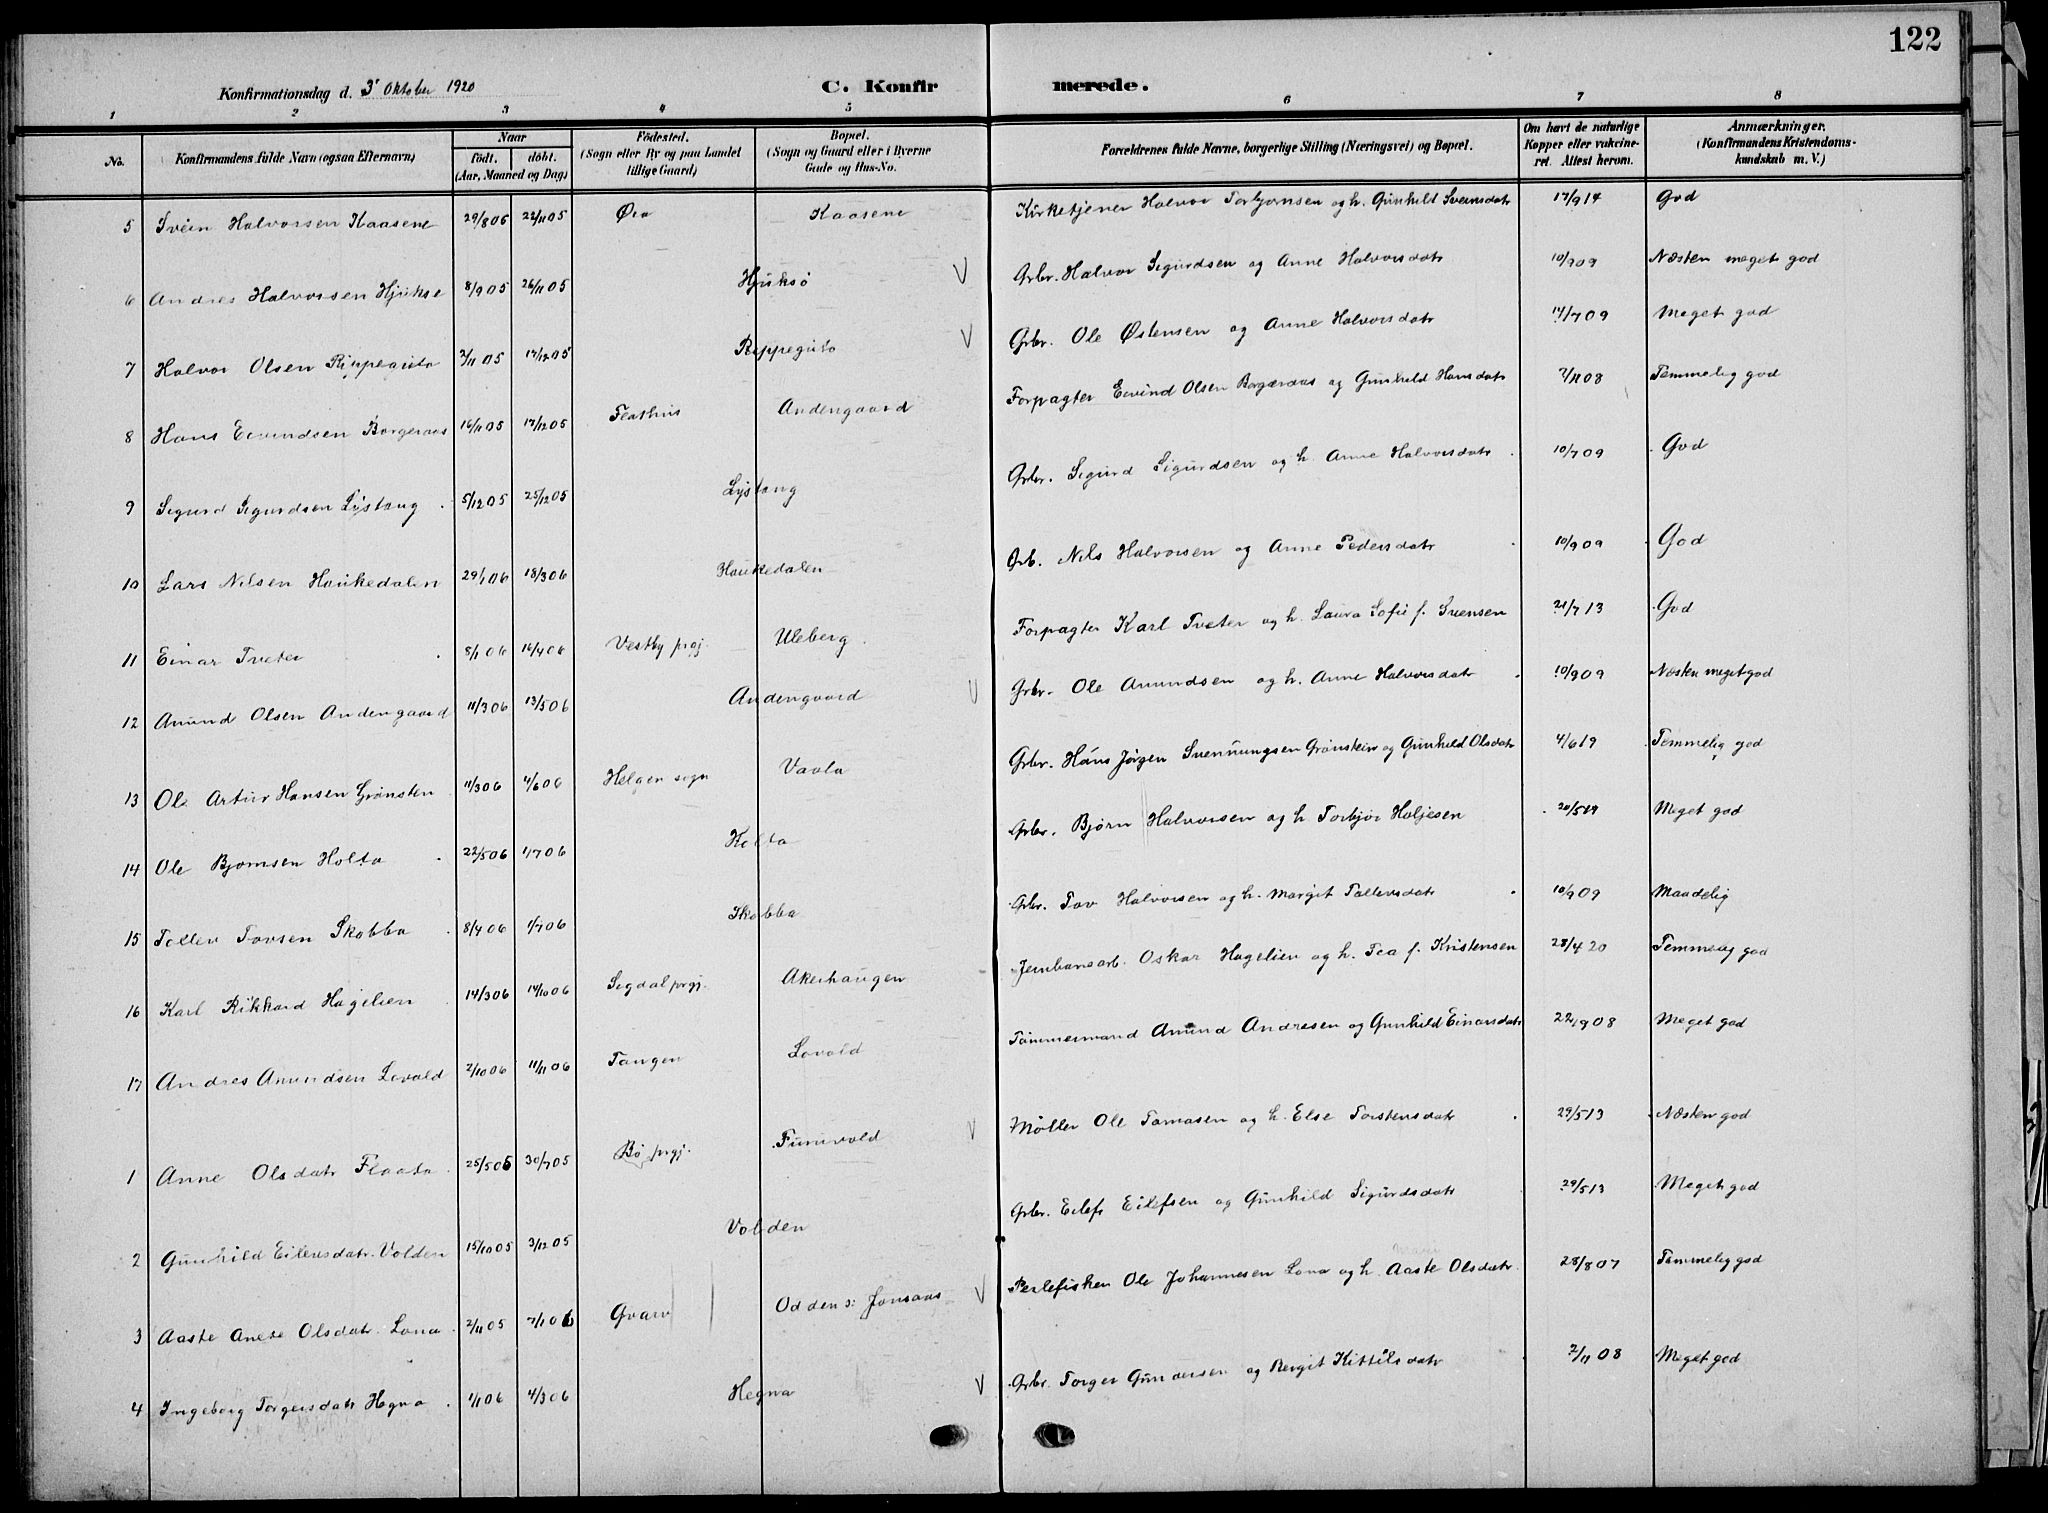 122
Konfirmationsdag d. 3' Oktober 1920 C. Konfirmerede.
1 2 3 4 5 6 7 8
No. Konfirmandens fulde Navn (ogsaa Efternavn) Naar födt. döbt. (Aar, Maaned og Dag) Födested. (Sogn eller By og paa Landet tillige Gaard) Bopæl. (Sogn og Gaard eller i Byerne Gade og Hus-No. Forældrenes fulde Navne, borgerlige Stilling (Næringsvei) og Bopæl. Om havt de naturlige Kopper eller vakcineret. Attest herom. Anmærkninger. (Konfirmandens Kristendomskundskab m. V.)
5 Svein Halvorsen Kaasene 29/8 05 22/11 05 Øra Kaasene Kirketjener Halvor Torbjørnsen og h. Gunhild Sveinsdatr 17/9 14 God
6 Andres Halvorsen Hjukse 8/9 05 26/11 05 Hjuksø V Grbr. Halvor Sigurdsen og Anne Halvorsdatr 10/9 09 Næsten meget god
7 Halvor Olsen Rippeguto 2/11 05 17/12 05 Rippeguto V Grbr. Ole Østensen og Anne Halvorsdatr 14/7 09 Meget god
8 Hans Eivindsen Borgeraas 16/11 05 17/12 05 Flathus Andengaard Forpagter Eivind Olsen Borgeraas og Gunhild Hansdatr 7/11 08 Temmelig god
9 Sigurd Sigurdsen Lystang 5/12 05 25/12 05 Lystang Grbr. Sigurd Sigurdsen og h. Anne Halvorsdatr 10/7 09 God
10 Lars Nilsen Haukedalen 29/1 06 18/3 06 Haukedalen Grb. Nils Halvorsen og Anne Pedersdatr 10/9 09 God
11 Einar Tveter 8/1 06 16/4 06 Vestby prgj. Uleberg Forpagter Karl Tveter og h. Laura Sofie f. Svensen 21/7 13 God
12 Amund Olsen Andengaard 11/3 06 13/5 06 Andengaard V Grbr. Ole Amundsen og h. Anne Halvorsdatr 10/9 09 Næsten meget god
13 Ole Artur Hansen Grønsten 11/3 06 4/6 06 Helgen sogn Vaala Grbr. Hans Jørgen Svennungsen Grønstein og Gunhild Olsdatr 4/6 19 Temmelig god
14 Ole Bjørnsen Holta 22/5 06 1/7 06 Holta Grbr. Bjørn Halvorsen og h Torbjør Holjesen 20/5 19 Meget god
15 Tollev Tovsen Skobba 8/4 06 1/7 06 Skobba Grbr. Tov Halvorsen og h. Margit Tollevsdatr 10/9 09 Maadelig
16 Karl Rikkard Hagelien 14/3 06 14/10 06 Sigdal prgj. Akerhaugen Jernbanearb. Oskar Hagelien og h. Tea f. Kristensen 28/4 20 Temmelig god
17 Andres Amundsen Lovald 2/10 06 11/11 06 Tangen Lovald Tømmermand Amund Andresen og Gunhild Einarsdatr 22/9 08 Meget god
1 Anne Olsdatr Flaata 25/5 05 30/7 05 Bø prgj. Furuvold V Møller Ole Tomasen og h. Else Torstensdatr 29/5 13 Næsten god
2 Gunhild Eilevsdatr. Volden 15/10 05 3/12 05 Volden Grbr. Eilef Eilefsen og Gunhild Sigurdsdatr 29/5 13 Meget god
3 Aaste Anete Olsdatr. Lona 2/11 05 7/1 06 Gvarv Odden s: Jonsaas V Perlefisker Ole Johannesen Lona og h. Aaste Olsdatr 28/8 07 Temmelig god
4 Ingeborg Torgersdatr Hegna 1/1 06 4/3 06 Hegna V Grbr. Torger Gundersen og Bergit Kittilsdatr 2/11 08 Meget god